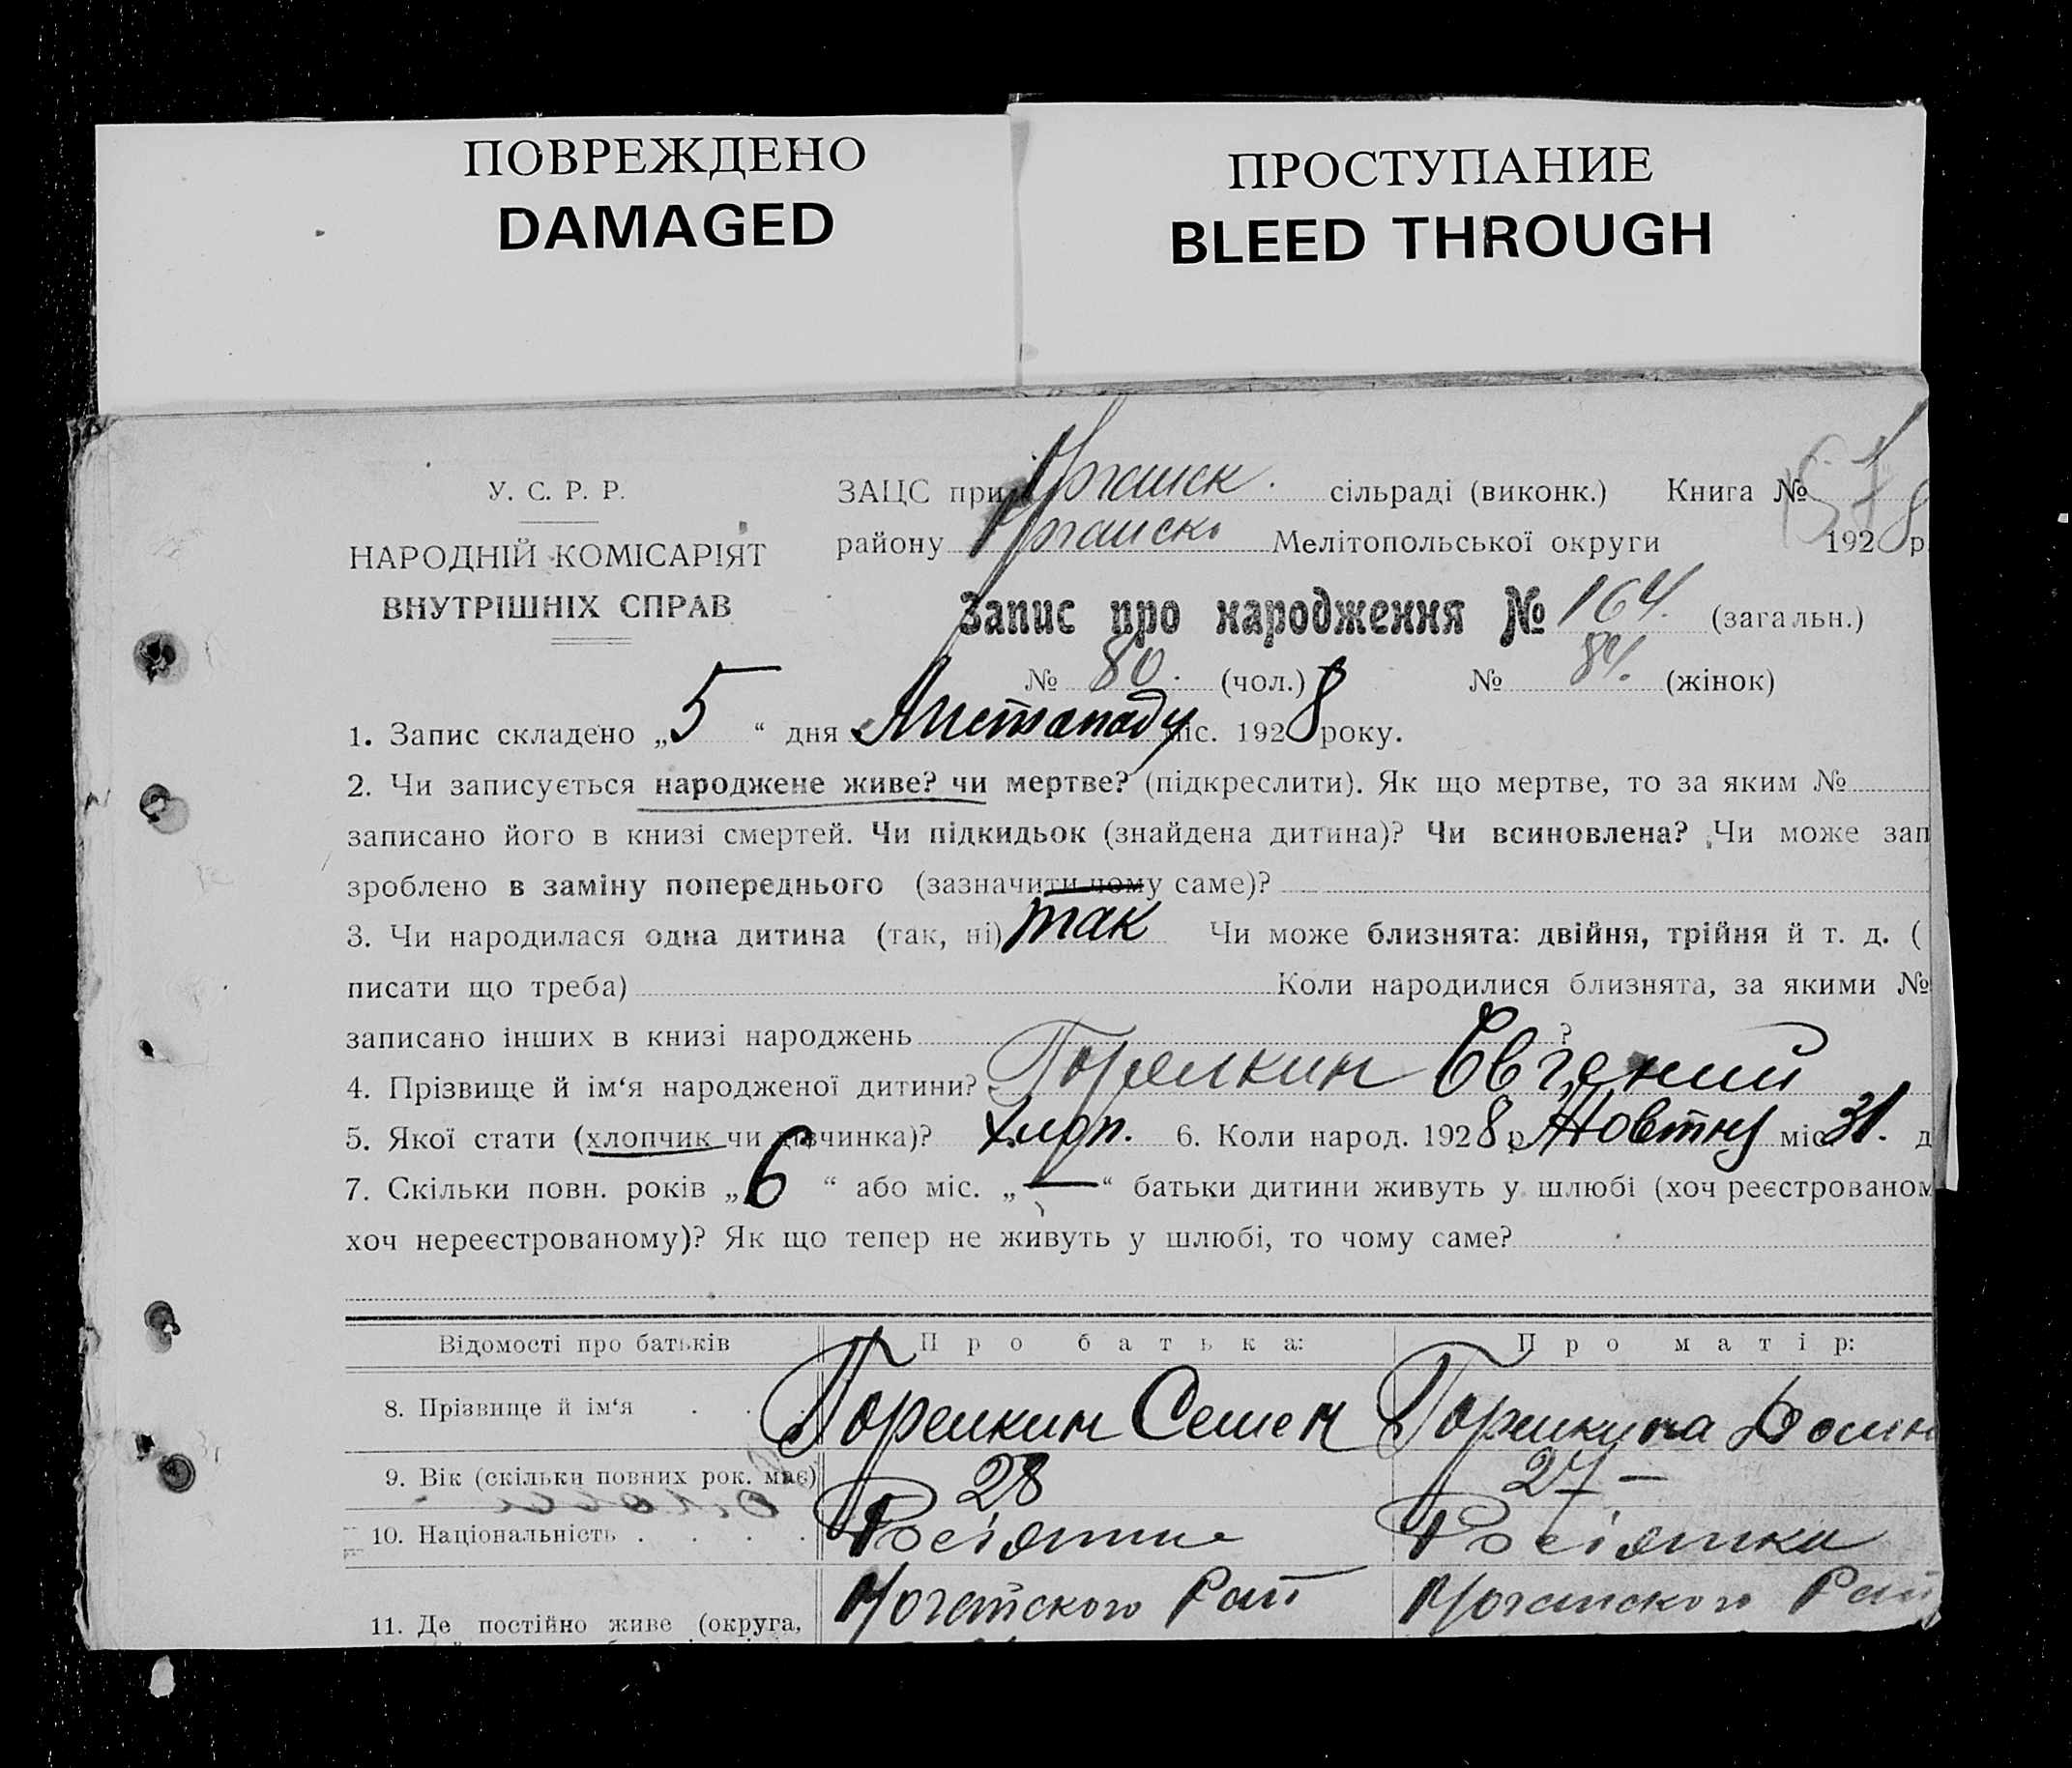 ПОВРЕЖДЕНО
DAMAGED
ПРОСТУПАНИЕ
BLEED THROUGH
У. С. Р. Р.
НАРОДНІЙ КОМІСАРІЯТ
ВНУТРІШНІХ СПРАВ
ЗАЦС при сільраді (виконк.) Книга №
району Мелітопольської округи 1928 р
Запис про народження № 164. (загальн.)
№ 80. (чол.) № 84. (жінок)
1. Запис складено „5“ дня Листопаду міс. 1928 року.
2. Чи записується народжене живе? чи мертве? (підкреслити). Як що мертве, то за яким №
записано його в книзі смертей. Чи підкидьок (знайдена дитина)? Чи всиновлена? Чи може зап
зроблено в заміну попереднього (зазначити чому саме)?
3. Чи народилася одна дитина (так, ні) так Чи може близнята: двійня, трійня й т. д. (
писати що треба) Коли народилися близнята, за якими №
записано інших в книзі народжень ?
4. Прізвище й ім‘я народженої дитини? Горелкин Евгений
5. Якої стати (хлопчик чи дівчинка)? хлоп. 6. Коли народ. 1928 р Жовтну міс 31. д
7. Скільки повн. років „6“ або міс. „—“ батьки дитини живуть у шлюбі (хоч реєстрованом
хоч нереєстрованому)? Як що тепер не живуть у шлюбі, то чому саме?
Відомості про батьків Про батька: Про матір:
8. Прізвище й ім‘я Горелкин Семен Горелкина
9. Вік (скільки повних рок. має) 28 27 —
10. Національність Росіянин Росіянка
11. Де постійно живе (округа,